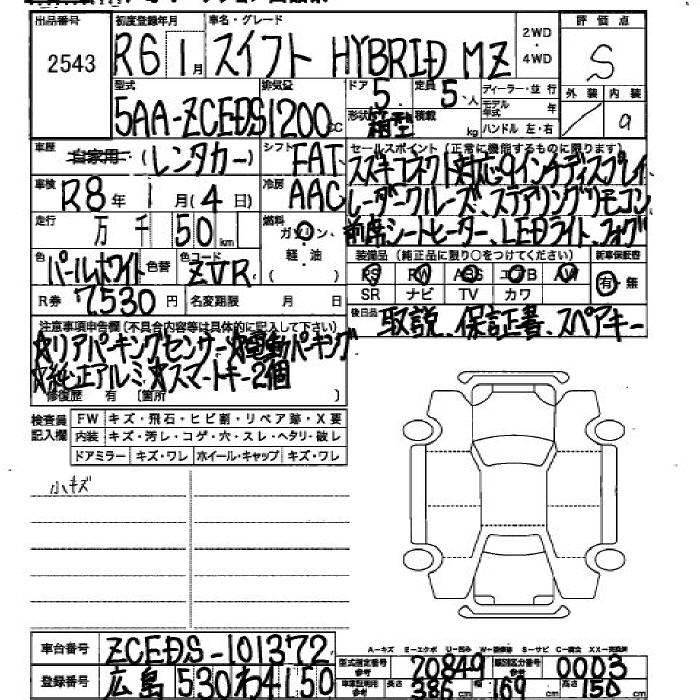 出品番号 初度登録年月 車名・グレード 2WD・4WD 評価点
2543 R6 1月 スイフト HYBRID MZ S
型式 排気量 ドア 5 定員 5人 ディーラー・並行 外装 内装
5AA-ZCEDS 1200cc 形状 箱型 積載 kg モデル年式 年 ハンドル 左・右 a
車歴 自家用・(レンタカー) シフト FAT セールスポイント(正常に機能するものに限ります)
スズキコネクト対応9インチディスプレイ
車検 R8年 1月(4日) 冷房 AAC レーダークルーズ、ステアリングリモコン
走行 万 千 50km 燃料 ガソリン・軽油 ( ) 前席シートヒーター、LEDライト、フォグ
色 パールホワイト 色替 色コード ZVR 装備品(純正品に限り○をつけてください) 新車保証書
PS PW ABS エアB AW 有・無
R券 7,530円 名変期限 月 日 SR ナビ TV カワ
注意事項申告欄(不具合内容等は具体的に記入して下さい) 後日品 取説、保証書、スペアキー
☆リアパーキングセンサー☆電動パーキング
☆純正アルミ☆スマートキー2個
修復歴 有 〔箇所 〕
検査員記入欄 FW キズ・飛石・ヒビ割・リペア跡・X要
内装 キズ・汚レ・コゲ・穴・スレ・ヘタリ・破レ
ドアミラー キズ・ワレ ホイール・キャップ キズ・ワレ
小キズ
車台番号 ZCEDS-101372
A-キズ E-エクボ U-凹み S-サビ C-腐食
型式指定番号参考 70849 類別区分番号参考 0003
登録番号 広島 530 わ 4150 車庫証明用参考 長さ 386cm 幅 169cm 高さ 150cm